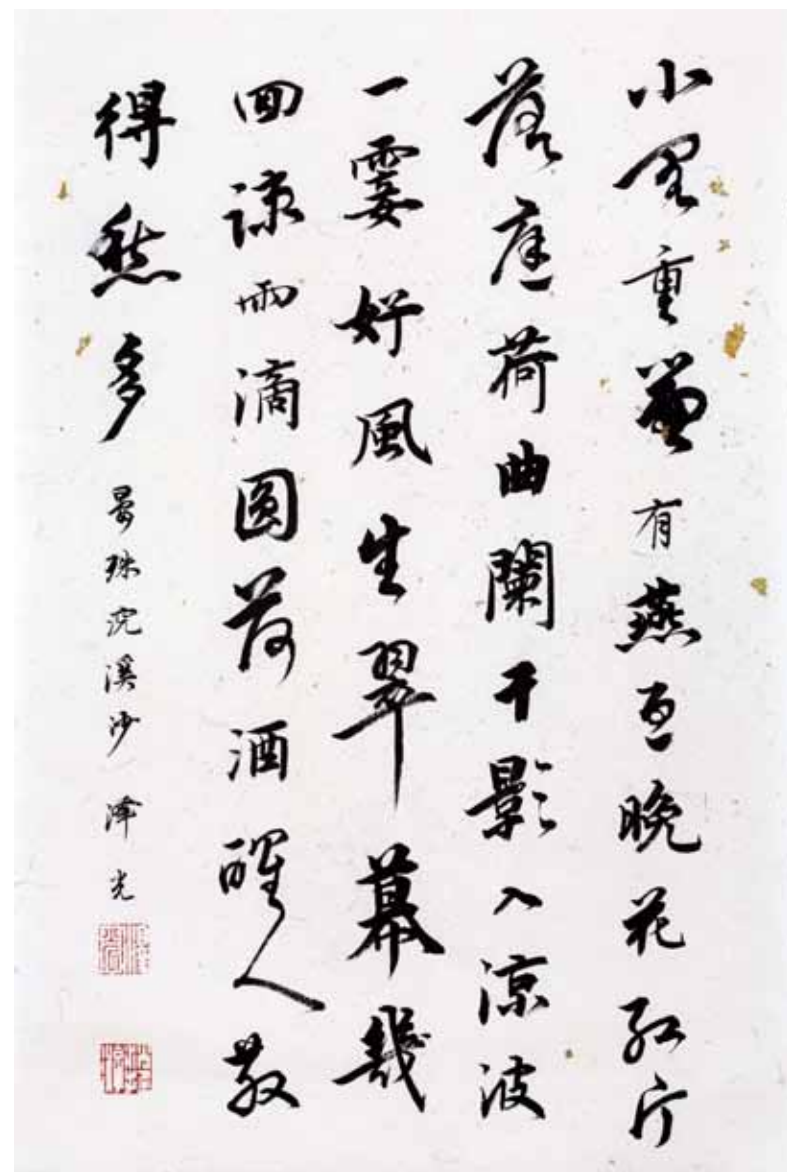 小閣重簾有燕過晚花紅片
落庭荷曲闌干影入涼波
一霎好風生翠幕幾
回疎雨滴圓荷酒醒人散
得愁多 晏殊浣溪沙 澤光